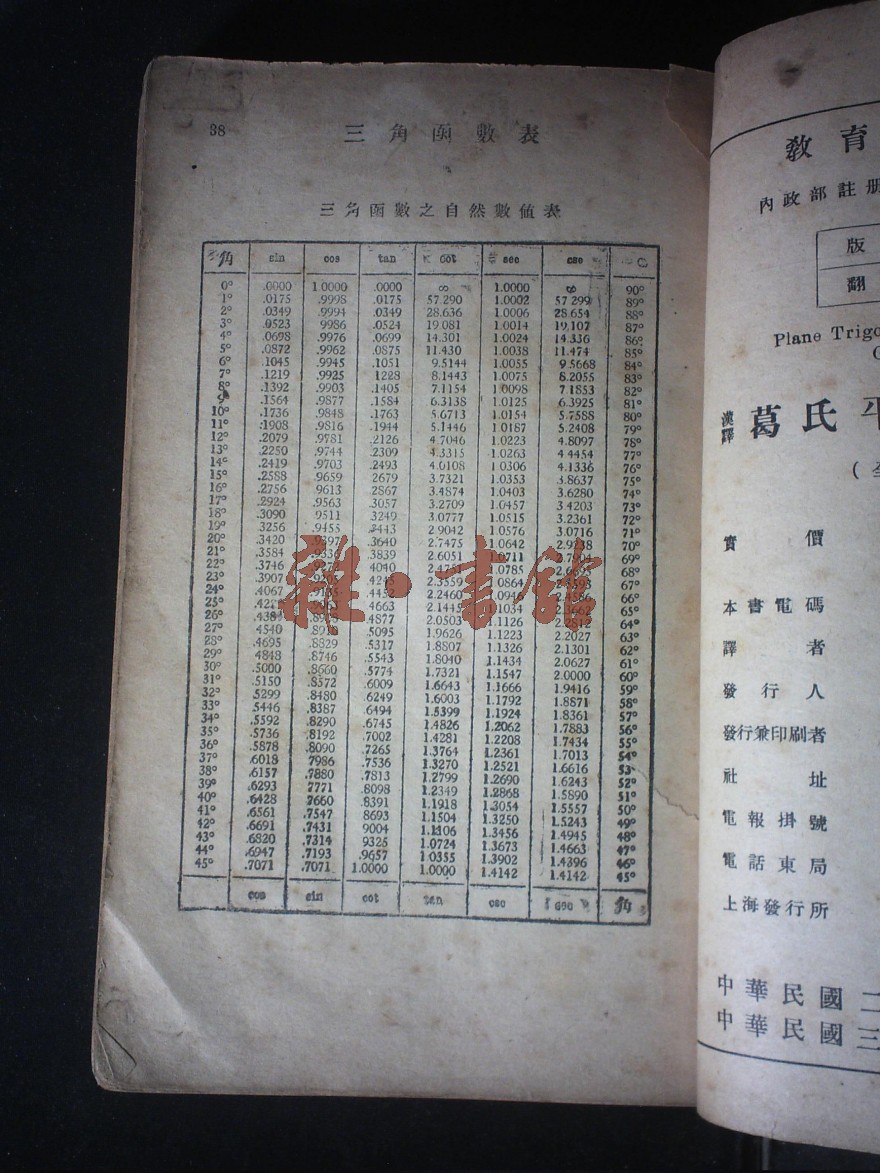 38
三角函數表
三角函數之自然數值表
角 sin cos tan cot sec csc
0° .0000 1.0000 .0000 ∞ 1.0000 ∞ 90°
1° .0175 .9998 .0175 57.290 1.0002 57.299 89°
2° .0349 .9994 .0349 28.636 1.0006 28.654 88°
3° .0523 .9986 .0524 19.081 1.0014 19.107 87°
4° .0698 .9976 .0699 14.301 1.0024 14.336 86°
5° .0872 .9962 .0875 11.430 1.0038 11.474 85°
6° .1045 .9945 .1051 9.5144 1.0055 9.5668 84°
7° .1219 .9925 1228 8.1443 1.0075 8.2055 83°
8° .1392 .9903 .1405 7.1154 1.0098 7.1853 82°
9° .1564 .9877 .1584 6.3138 1.0125 6.3925 81°
10° .1736 .9848 .1763 5.6713 1.0154 5.7588 80°
11° .1908 .9816 .1944 5.1446 1.0187 5.2408 79°
12° .2079 .9781 .2126 4.7046 1.0223 4.8097 78°
13° .2250 .9744 .2309 4.3315 1.0263 4.4454 77°
14° .2419 .9703 .2493 4.0108 1.0306 4.1336 76°
15° .2588 .9659 2679 3.7321 1.0353 3.8637 75°
16° .2756 .9613 2867 3.4874 1.0403 3.6280 74°
17° .2924 .9563 .3057 3.2709 1.0457 3.4203 73°
18° .3090 .9511 .3249 3.0777 1.0515 3.2361 72°
19° .3256 .9455 .3443 2.9042 1.0576 3.0716 71°
20° .3420 .9397 .3640 2.7475 1.0642 2.9238 70°
21° .3584 .9336 .3839 2.6051 1.0711 69°
22° .3746 4040 1.0785 2.6695 68°
23° .3907 .4245 2.3559 1.0864 2.5593 67°
24° .4067 2.2460 66°
25° 4663 2.1445 1.1034 65°
26° .4384 .4877 2.0503 1.1126 64°
27° 4540 .5095 1.9626 1.1223 2.2027 63°
28° .4695 .8829 .5317 1.8807 1.1326 2.1301 62°
29° 4848 .8746 .5543 1.8040 1.1434 2.0627 61°
30° .5000 .8660 .5774 1.7321 1.1547 2.0000 60°
31° .5150 .8572 .6009 1.6643 1.1666 1.9416 59°
32° .5299 .8480 .6249 1.6003 1.1792 1.8871 58°
33° .5446 .8387 .6494 1.5399 1.1924 1.8361 57°
34° .5592 .8290 .6745 1.4826 1.2062 1.7883 56°
35° .5736 .8192 .7002 1.4281 1.2208 1.7434 55°
36° .5878 .8090 .7265 1.3764 1.2361 1.7013 54°
37° .6018 7986 .7536 1.3270 1.2521 1.6616 53°
38° .6157 .7880 .7813 1.2799 1.2690 1.6243 52°
39° .6293 7771 .8098 1.2349 1.2868 1.5890 51°
40° .6428 7660 .8391 1.1918 1.3054 1.5557 50°
41° .6561 .7547 8693 1.1504 1.3250 1.5243 49°
42° .6691 .7431 9004 1.1106 1.3456 1.4945 48°
43° .6820 .7314 9325 1.0724 1.3673 1.4663 47°
44° .6947 .7193 .9657 1.0355 1.3902 1.4396 46°
45° .7071 .7071 1.0000 1.0000 1.4142 1.4142 45°
cos sin cot tan csc sec 角
雜·書館
教育
內政部註册
版
翻
Plane Trigo
漢譯 葛氏平
實價
本書電碼
譯者
發行人
發行兼印刷者
社址
電報掛號
電話東局
上海發行所
中華民國二
中華民國三